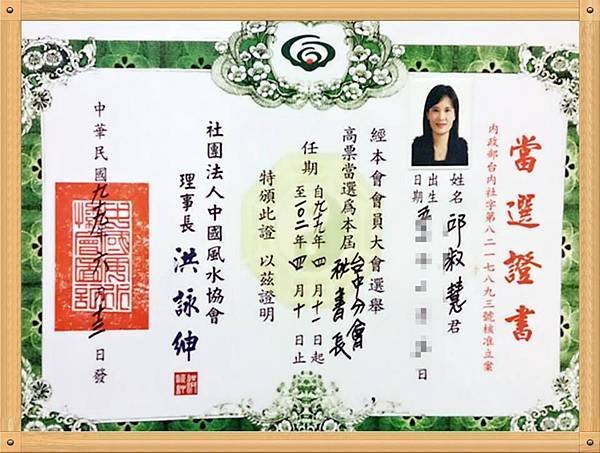 當選證書
內政部台內社字第八二一七八九三號核准立案
姓名 邱淑慧 君
出生日期 五 日
經本會會員大會選舉
高票當選為本屆台中分會秘書長
任期 自九九年四月十一日起
至一〇二年四月十日止
特頒此證 以茲證明
社團法人中國風水協會
理事長 洪詠紳
中華民國九十九年六月十三日發